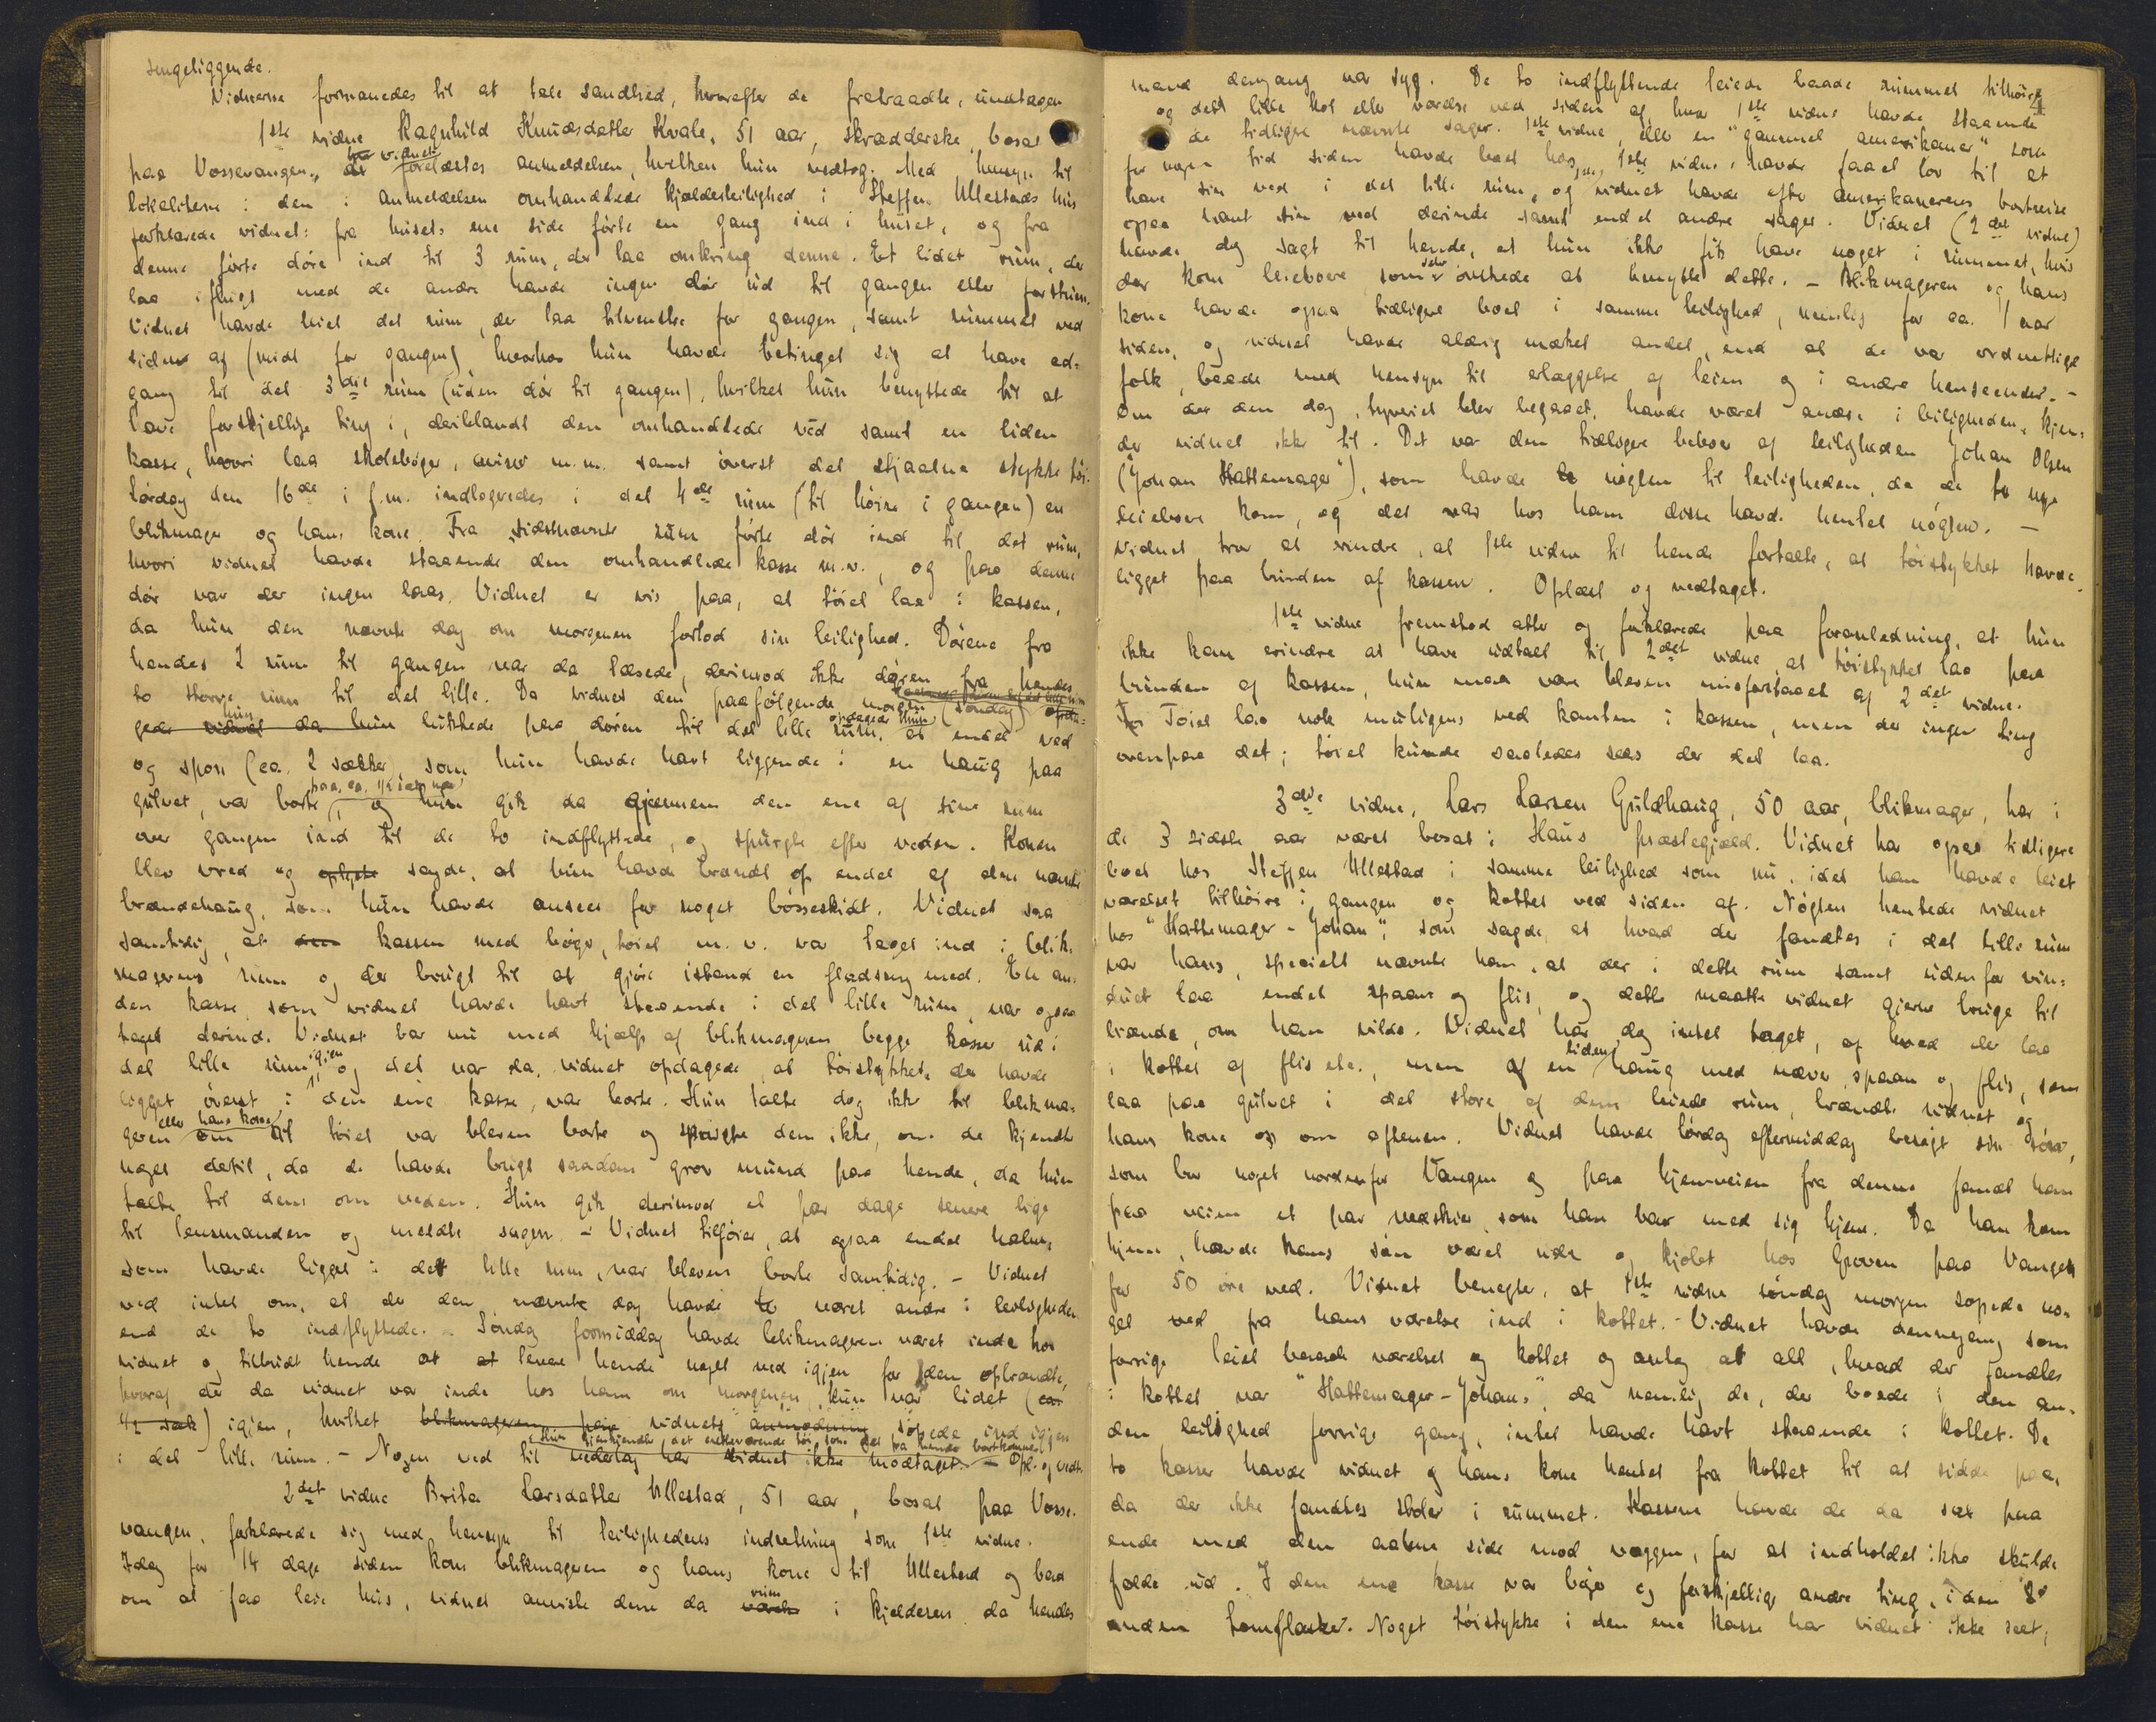 sengeliggende.
Vidnerne formanedes til at tale sandhed, hvorefter de fratraadte, undtagen
1ste vidne Ragnhild Knudsdatter Kvale, 51 aar, skrædderske, bosat
paa Vossevangen, for vidnet forelæstes anmeldelsen, hvilken hun vedtog. Med hensyn til
lokaliterne i den i anmeldelsen omhandlede kjælderleilighed i Steffen Ullestads hus
forklarede vidnet: fra husets ene side førte en gang ind i huset, og fra
denne førte døre ind til 3 rum, der laa omkring denne. Et lidet rum, der
laa iflugt med de andre havde ingen dør ud til gangen eller forstuen.
Vidnet havde leiet det rum, der laa tilvenstre for gangen, samt rummet ved
siden af (midt for gangen) hvorhos hun havde betinget sig at have ad-
gang til det 3die rum (uden dør til gangen), hvilket hun benyttede til at
have forskjellige ting i, deriblandt den omhandlede ved samt en liden
kasse, hvori laa skolebøger, aviser m.m. samt øverst det stjaalne stykke tøi.
Lørdag den 16de i f.m. indlogeredes i det 4de rum (til høire i gangen) en
blikmager og hans kone. Fra sidstnævnte rum førte dør ind til det rum,
hvori vidnet havde staaende den omhandlede kasse m.v., og paa denne
dør var der ingen laas. Vidnet er vis paa, at tøiet laa i kassen,
da hun den nævnte dag om morgenen forlod sin leilighed. Dørene fra
hendes 2 rum til gangen var da læsede, derimod ikke døren fra hendes
to større rum til det lille. Da vidnet den paafølgende morgen (søndag) opda-
gede vidnet da hun hun lukkede paa døren til det lille rum, opdagede hun at endel ved
og spon (ca. 2 sække) som hun havde havt liggende i en haug paa
gulvet, var borte, paa ca. 1/2 sæk nær og hun gik da gjennem den ene af sine rum
over gangen ind til de to indflyttede, og spurgte efter veden. Konen
blev vred og oplyste sagde, at hun havde brændt op endel af den nævnte
brændehaug, som hun havde anseet for noget bosseskidt. Vidnet saa
samtidig, at den kassen med bøger, tøiet m.v. var taget ind i blik-
magerens rum og der brugt til at gjøre istand en fladseng med. En an-
den kasse, som vidnet havde havt staaende i det lille rum, var ogsaa
taget derind. Vidnet bar nu med hjælp af blikmageren begge kasser ud i
det lille rum igjen, og det var da, vidnet opdagede, at tøistykket, der havde
ligget øverst i den ene kasse, var borte. Hun talte dog ikke til blikma-
geren eller hans kone om at tøiet var bleven borte og spurgte dem ikke, om de kjendte
noget dertil, da de havde brugt saadan grov mund paa hende, da hun
talte til dem om veden. Hun gik derimod et par dage senere lige
til lensmanden og meldte sagen. – Vidnet tilføier, at ogsaa endel halm,
som havde ligget i det lille rum, var bleven borte samtidig. – Vidnet
ved intet om, at der den nævnte dag havde været andre i leiligheden
end de to indflyttede. – Søndag formiddag havde blikmageren været inde hos
vidnet og tilbudt hende at levere hende noget ved igjen for den opbrændte,
hvoraf der da vidnet var inde hos ham om morgenen kun var lidet (ca.
1/2 sæk) igjen, hvilket blikmageren paa vidnets anmodning sopede ind igjen
i det lille rum. – Nogen ved til vederlag har vidnet ikke modtaget. – Hun gjenkjendte det nærværende tøi, som det fra hende bortkomne. Opl. og vedt.
2det vidne Brita Larsdatter Ullestad, 51 aar, bosat paa Vosse-
vangen, forklarede sig med hensyn til leilighedens indretning som 1ste vidne.
Idag for 14 dage siden kom blikmageren og hans kone til Ullestad og bad
om at faa leie hus, vidnet anviste dem da rum i kjælderen, da hendes
mand dengang var syg. De to indflyttende leiede baade rummet tilhøire
og det lille kot eller værelse ved siden af, hvor 1ste vidne havde staaende
de tidligere nævnte sager. 1ste vidne, eller en "gammel amerikaner" som
for nogen tid siden havde boet hos 1ste vidne, havde faaet lov til at
have sin ved i det lille rum, og vidnet havde efter amerikanerens bortreise
ogsaa havt sin ved derinde samt endel andre sager. Vidnet (2det vidne)
havde dog sagt til hende, at hun ikke fik have noget i rummet, hvis
der kom leieboere, som selv ønskede at benytte dette. – Blikmageren og hans
kone havde ogsaa tidligere boet i samme leilighed, nemlig for ca. 1 aar
siden, og vidnet havde aldrig mærket andet, end at de var ordentlige
folk, baade med hensyn til erlæggelse af leien og i andre henseender. –
Om der den dag, tyveriet blev begaaet, havde været andre i leiligheden, kjen-
der vidnet ikke til. Det var den tidligere beboer af leiligheden Johan Olsen
("Johan Hattemager"), som havde nøglen til leiligheden, da de to nye
leieboere kom, og det var hos ham disse havde hentet nøglen. –
Vidnet tror at erindre, at 1ste vidne til hende fortalte, at tøistykket havde
ligget paa bunden af kassen. Oplæst og vedtaget.
1ste vidne fremstod atter og forklarede paa foranledning, at hun
ikke kan erindre at have udtalt til 2det vidne, at tøistykket laa paa
bunden af kassen, hun maa være bleven misforstaaet af 2det vidne.
Tøiet laa nok muligens ved kanten i kassen, men der ingen ting
ovenpaa det; tøiet kunde saaledes sees der det laa.
3die vidne, Lars Larsen Guldhaug, 50 aar, blikmager, har i
de 3 sidste aar været bosat i Haus præstegjæld. Vidnet har ogsaa tidligere
boet hos Steffen Ullestad i samme leilighed som nu, idet han havde leiet
værelset tilhøire i gangen og kottet ved siden af. Nøglen hentede vidnet
hos "Hattemager-Johan", som sagde, at hvad der fandtes i det lille rum
var hans, specielt nævnte han, at der i dette rum samt udenfor vin-
duet laa endel spaan og flis, og dette maatte vidnet gjerne bruge til
brænde, om han vilde. Vidnet har dog intet taget, af hvad der laa
i kottet af flis etc., men af en liden haug med næver, spaan og flis, som
laa paa gulvet i det store af dem leiede rum, brændte vidnet og
hans kone op om aftenen. Vidnet havde lørdag eftermiddag besøgt sin søn,
som bor noget nordenfor Vangen og paa hjemveien fra denne fandt han
paa veien et par vedskier, som han bar med sig hjem. Da han kom
hjem, havde hans søn været ude og kjøbt hos Groven paa Vangen
for 50 øre ved. Vidnet benegter, at 1ste vidne søndag morgen sopede no-
get ved fra hans værelse ind i kottet. – Vidnet havde dennegang som
forrige leiet baade værelset og kottet og antog at alt, hvad der fandtes
i kottet var "Hattemager-Johans", da nemlig de, der boede i den an-
den leilighed forrige gang, intet havde havt staaende i kottet. De
to kasser havde vidnet og hans kone hentet fra kottet til at sidde paa,
da der ikke fandtes stoler i rummet. Kasserne havde de da sat paa
ende med den aabne side mod væggen, for at indholdet ikke skulde
falde ud. I den ene kasse var bøger og forskjellige andre ting, i den
anden tomflasker. Noget tøistykke i den ene kasse har vidnet ikke seet,